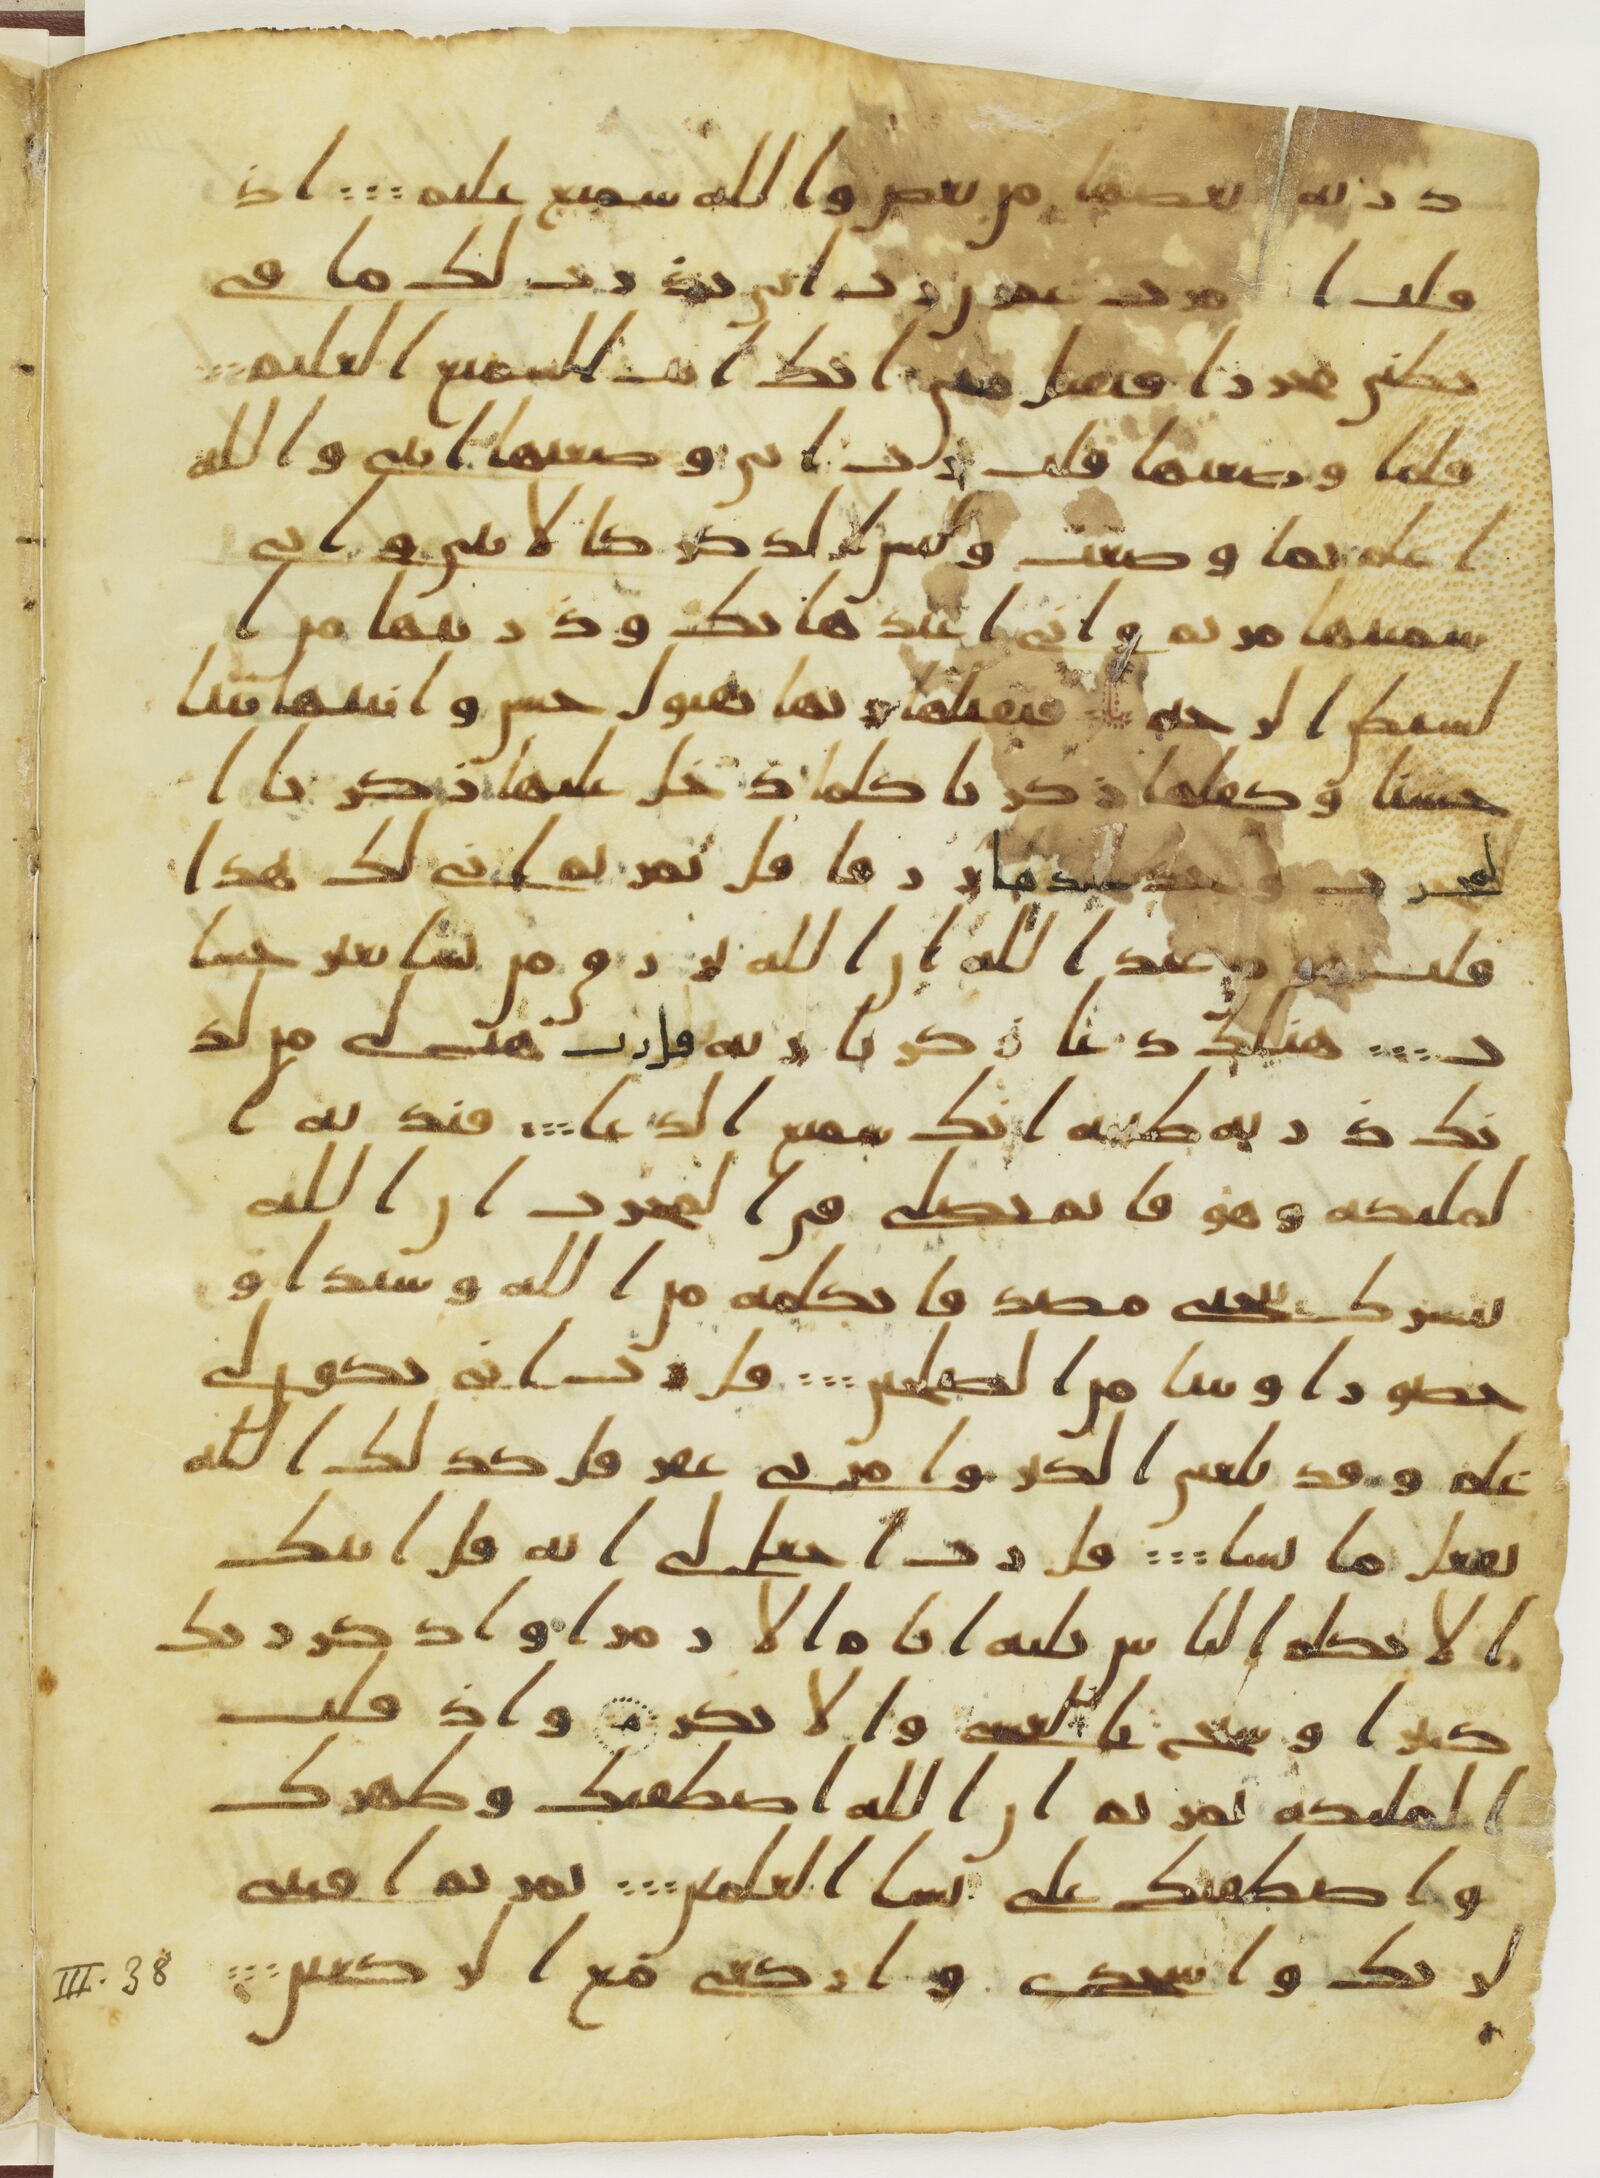 ذرية بعضها من بعض والله سميع عليم ⁝⁝ اذ
قلت ا مرت عمرن رب اني نذرت لك ما في
بطني محررا فتقبل مني انك انت السميع العليم ⁝⁝
فلما وضعتها قلت رب اني وضعتها انثى والله
اعلم بما وضعت وليس الذكر كالانثى واني
سميتها مريم واني اعيذها بك وذريتها من ا
لشيطن الرجيم ⁝⁝ فتقبلها ربها بقبول حسن وانبتها نبتا
حسنا وكفلها زكريا كلما دخل عليها زكريا ا
لمحرب وجد عندها رزقا قل يمريم انى لك هذا
قلت هو من عند الله ان الله يرزق من يشا بغير حسا
ب ⁝⁝ هنلك دعا زكريا ربه قل رب هب لي من لد
نك ذرية طيبة انك سميع الدعا ⁝⁝ فندته ا
لمليكة وهو قايم يصلي في المحرب ان الله
يبشرك بيحيى مصدقا بكلمة من الله وسيدا و
حصورا ونبيا من الصلحين ⁝⁝ قل رب انى يكون لي
غلم وقد بلغني الكبر وامرتي عقر قل كذلك الله
يفعل ما يشا ⁝⁝ قل رب اجعل لي اية قل ايتك
الا تكلم الناس ثلثة ايام الا رمزا واذكر ربك
كثيرا وسبح بالعشي والابكر واذ قلت
المليكة يمريم ان الله اصطفيك وطهرك
واصطفيك على نسا العلمين ⁝⁝ يمريم اقنتي
لربك واسجدي واركعي مع الركعين ⁝⁝
III. 38